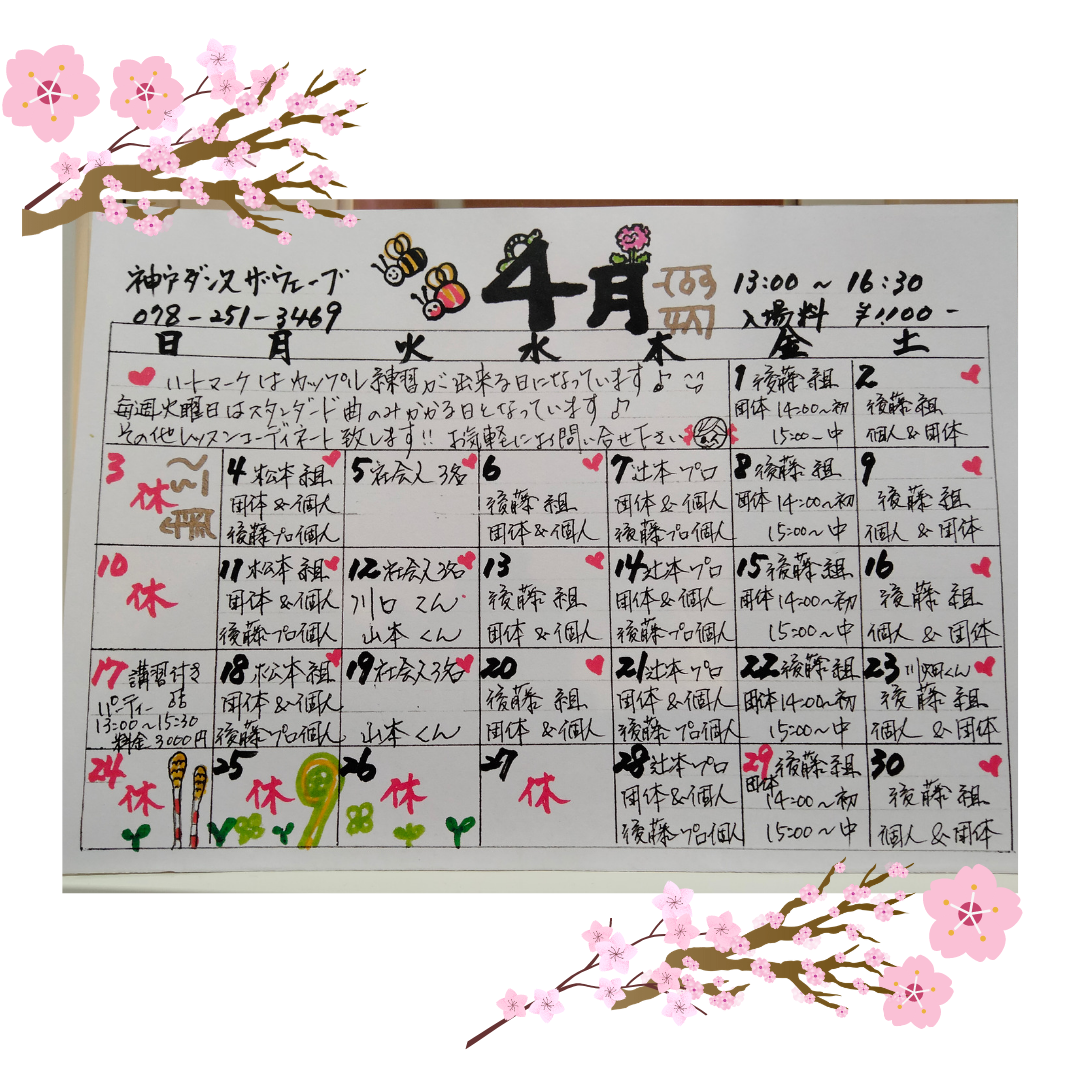 神戸ダンス ザ・ウェーブ
078-251-3469
4月
13:00 ~ 16:30
入場料 ¥1,100-
日 月 火 水 木 金 土
ハートマークはカップル練習が出来る日になっています♪
毎週火曜日はスタンダード曲のみかかる日となっています♪
その他レッスンコーディネート致します!! お気軽にお問い合せ下さい
1 後藤組
団体 14:00~初
15:00~中
2
後藤組
個人&団体
3
休
4 松本組
団体&個人
後藤プロ個人
5 社会人3名
6
後藤組
団体&個人
7 辻本プロ
団体&個人
後藤プロ個人
8 後藤組
団体 14:00~初
15:00~中
9
後藤組
個人&団体
10
休
11 松本組
団体&個人
後藤プロ個人
12 社会人3名
川口くん
山本くん
13
後藤組
団体&個人
14 辻本プロ
団体&個人
後藤プロ個人
15 後藤組
団体 14:00~初
15:00~中
16
後藤組
個人&団体
17 講習付き
パーティー
13:00~15:30
料金 3000円
18 松本組
団体&個人
後藤プロ個人
19 社会人3名
山本くん
20
後藤組
団体&個人
21 辻本プロ
団体&個人
後藤プロ個人
22 後藤組
団体 14:00~初
15:00~中
23 川畑くん
後藤組
個人&団体
24
休
25
休
26
休
27
休
28 辻本プロ
団体&個人
後藤プロ個人
29 後藤組
団体
14:00~初
15:00~中
30
後藤組
個人&団体